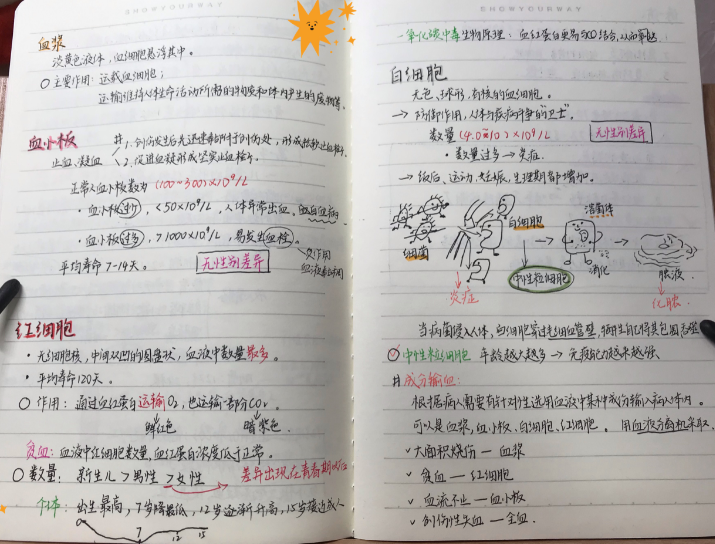 SHOWYOURWAY
血浆
淡黄色液体，血细胞悬浮其中。
○ 主要作用：运载血细胞；
运输维持人体生命活动所需的物质和体内产生的废物等.
血小板
止血、凝血
1. 创伤发生后先迅速黏附于创伤处，形成松软止血栓.
2. 促进血凝形成坚实止血栓子.
正常人血小板数为 (100~300)×10⁹/L
· 血小板过少，<50×10⁹/L，人体异常出血.
· 血小板过多，>1000×10⁹/L，易发生血栓。
平均寿命 7-14天。
无性别差异
红细胞
· 无细胞核，中间双凹的圆盘状，血液中数量最多。
· 平均寿命120天。
○ 作用：通过血红蛋白运输O₂，也运输一部分CO₂.
鲜红色 暗紫色.
贫血：血液中红细胞数量，血红蛋白浓度低于正常。
○ 数量：新生儿 > 男性 > 女性
差异出现在青春期以后
个体：出生最高，7岁降最低，12岁逐渐升高，15岁接近成人
7 12 15
SHOWYOURWAY
一氧化碳中毒生物原理：血红蛋白更易与CO结合，从而窒息.
白细胞
无色、球形，有核的血细胞。
→ 防御作用，人体与疾病斗争的"卫士".
数量 (4.0~10)×10⁹/L
无性别差异
· 数量过多→炎症.
→ 饭后、运动、妊娠，生理期都增加。
白细胞
溶菌体
细菌
中性粒细胞
消化
脓液.
炎症
化脓.
当病菌侵入人体，白细胞穿过毛细血管壁，
中性粒细胞 年龄越大越多 → 免疫能力越来越强
# 成分输血：
根据病人需要有针对性选用血液中某种成份输入病人体内。
可以是血浆，血小板、白细胞、红细胞。用血液分离机采取.
✓ 大面积烧伤 — 血浆
✓ 贫血 — 红细胞
✓ 血流不止 — 血小板
✓ 创伤性失血 — 全血.